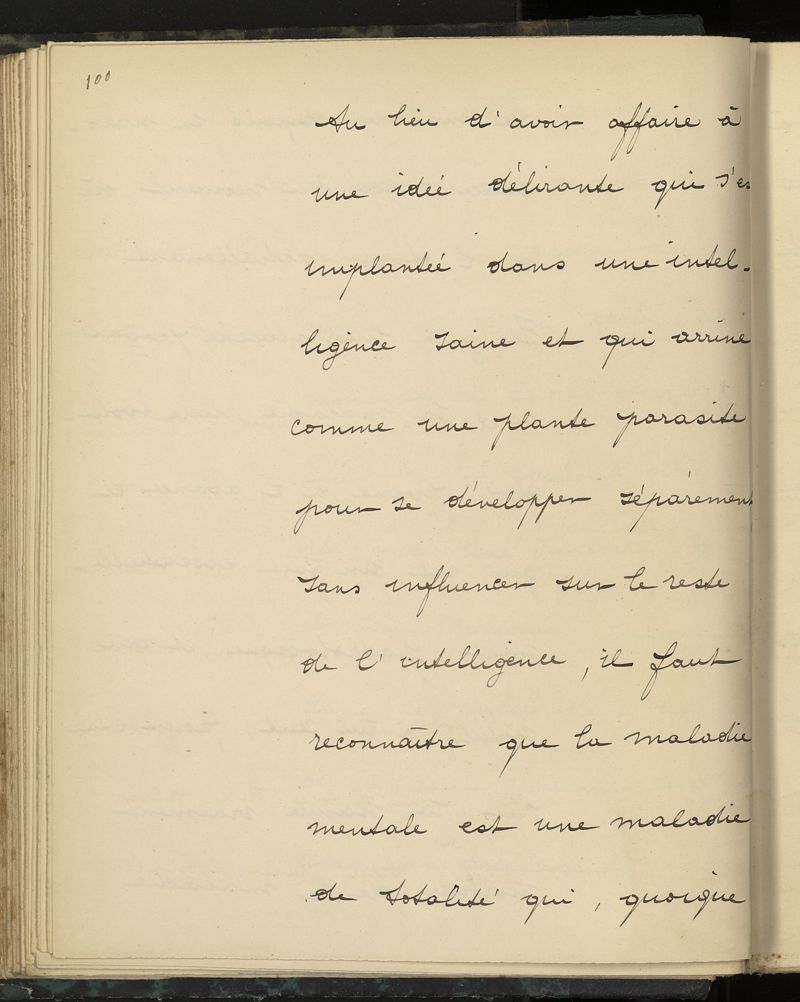 100
Au lieu d'avoir affaire à
une idée délirante qui s'es
implantée dans une intel-
ligence saine et qui arrive
comme une plante parasite
pour se développer séparément
sans influencer sur le reste
de l'intelligence, il faut
reconnaître que la maladie
mentale est une maladie
de totalité qui, quoique